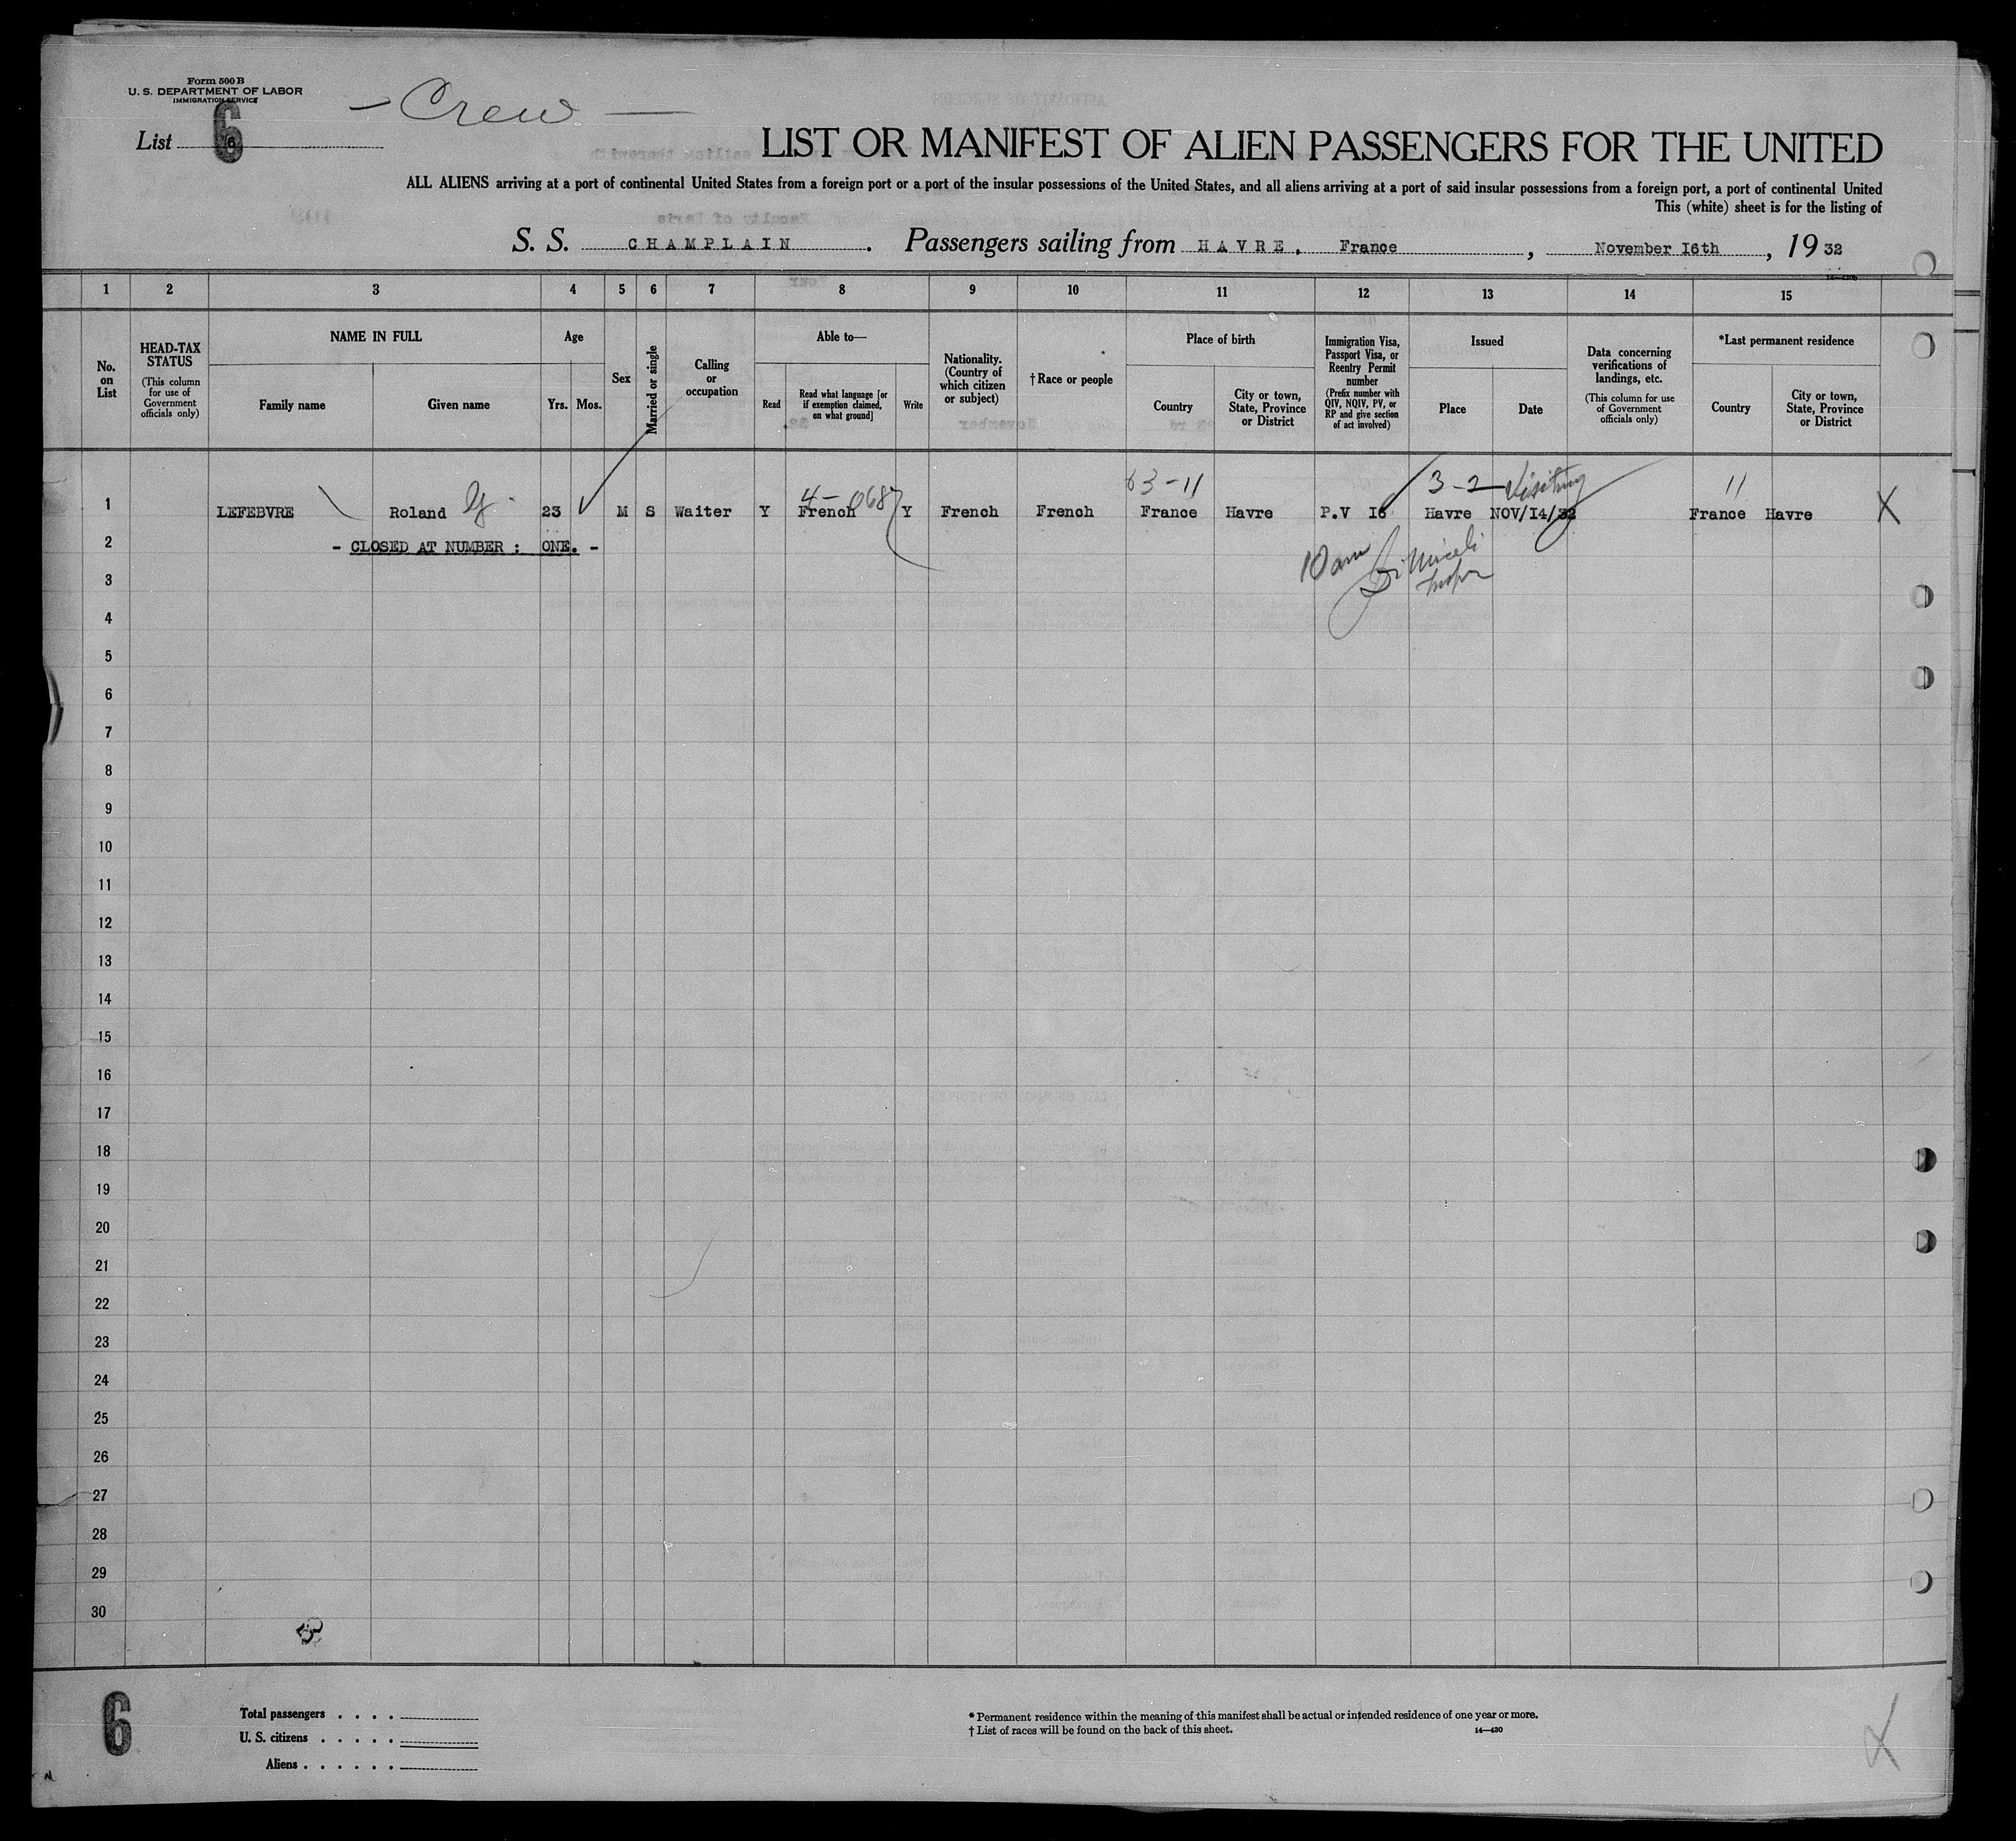 Form 500 B
U. S. DEPARTMENT OF LABOR
IMMIGRATION SERVICE
- Crew -
List 6
LIST OR MANIFEST OF ALIEN PASSENGERS FOR THE UNITED
ALL ALIENS arriving at a port of continental United States from a foreign port or a port of the insular possessions of the United States, and all aliens arriving at a port of said insular possessions from a foreign port, a port of continental United
This (white) sheet is for the listing of
S. S. CHAMPLAIN. Passengers sailing from HAVRE, France, November I6th, 19 32
1 2 3 4 5 6 7 8 9 10 11 12 13 14 15
No. on List
HEAD-TAX STATUS
(This column for use of Government officials only)
NAME IN FULL
Family name
Given name
Age
Yrs. Mos.
Sex
Married or single
Calling or occupation
Able to—
Read
Read what language [or if exemption claimed, on what ground]
Write
Nationality. (Country of which citizen or subject)
†Race or people
Place of birth
Country
City or town, State, Province or District
Immigration Visa, Passport Visa, or Reentry Permit number
(Prefix number with QIV, NQIV, PV, or RP and give section of act involved)
Issued
Place
Date
Data concerning verifications of landings, etc.
(This column for use of Government officials only)
*Last permanent residence
Country
City or town, State, Province or District
4- 068 63-11 3-2 Visiting 11
1 LEFEBVRE Roland G 23 M S Waiter Y French Y French French France Havre P.V I6 Havre NOV/I4/32 France Havre X
2 - CLOSED AT NUMBER : ONE. -
10 am
3
4
5
6
7
8
9
10
11
12
13
14
15
16
17
18
19
20
21
22
23
24
25
26
27
28
29
30
6
Total passengers . . . .
U. S. citizens . . . . .
Aliens . . . . . .
* Permanent residence within the meaning of this manifest shall be actual or intended residence of one year or more.
† List of races will be found on the back of this sheet.
14—430